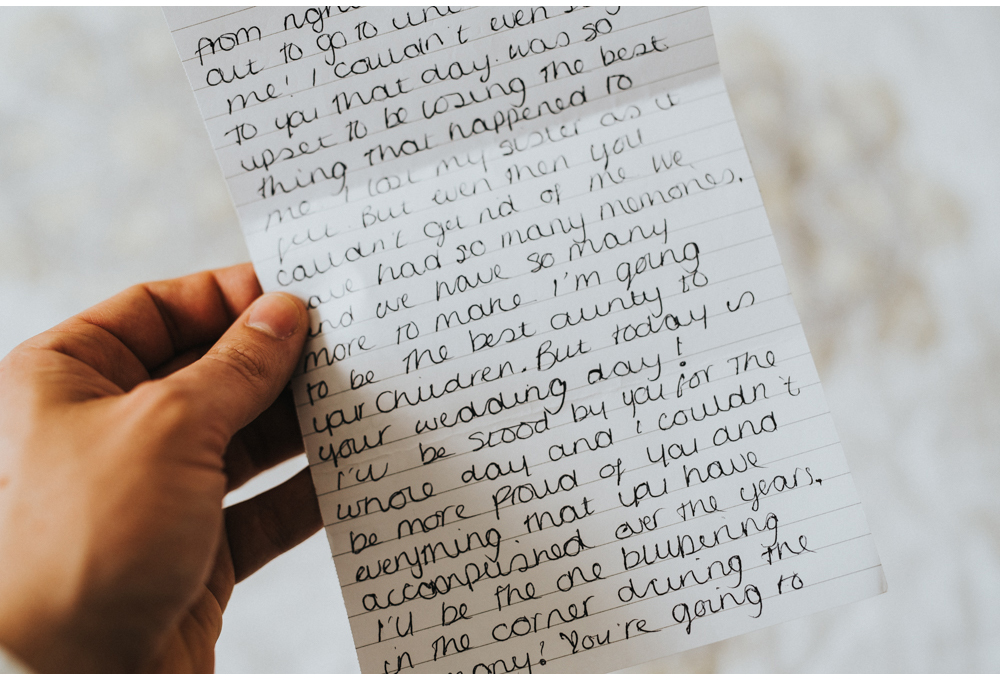 from
out to go to
me! I couldn't even
to you that day. was so
upset to be losing the best
thing that happened to
me. I lost my sister as it
felt. But even then you
couldn't get rid of me we
have had so many memories.
and we have so many
more to make I'm going
to be the best aunty to
your children. But today is
your wedding day!
I'll be stood by you for the
whole day and I couldn't
be more proud of you and
everything that you have
accomplished over the years.
I'll be the one blubering
in the corner during the
You're going to